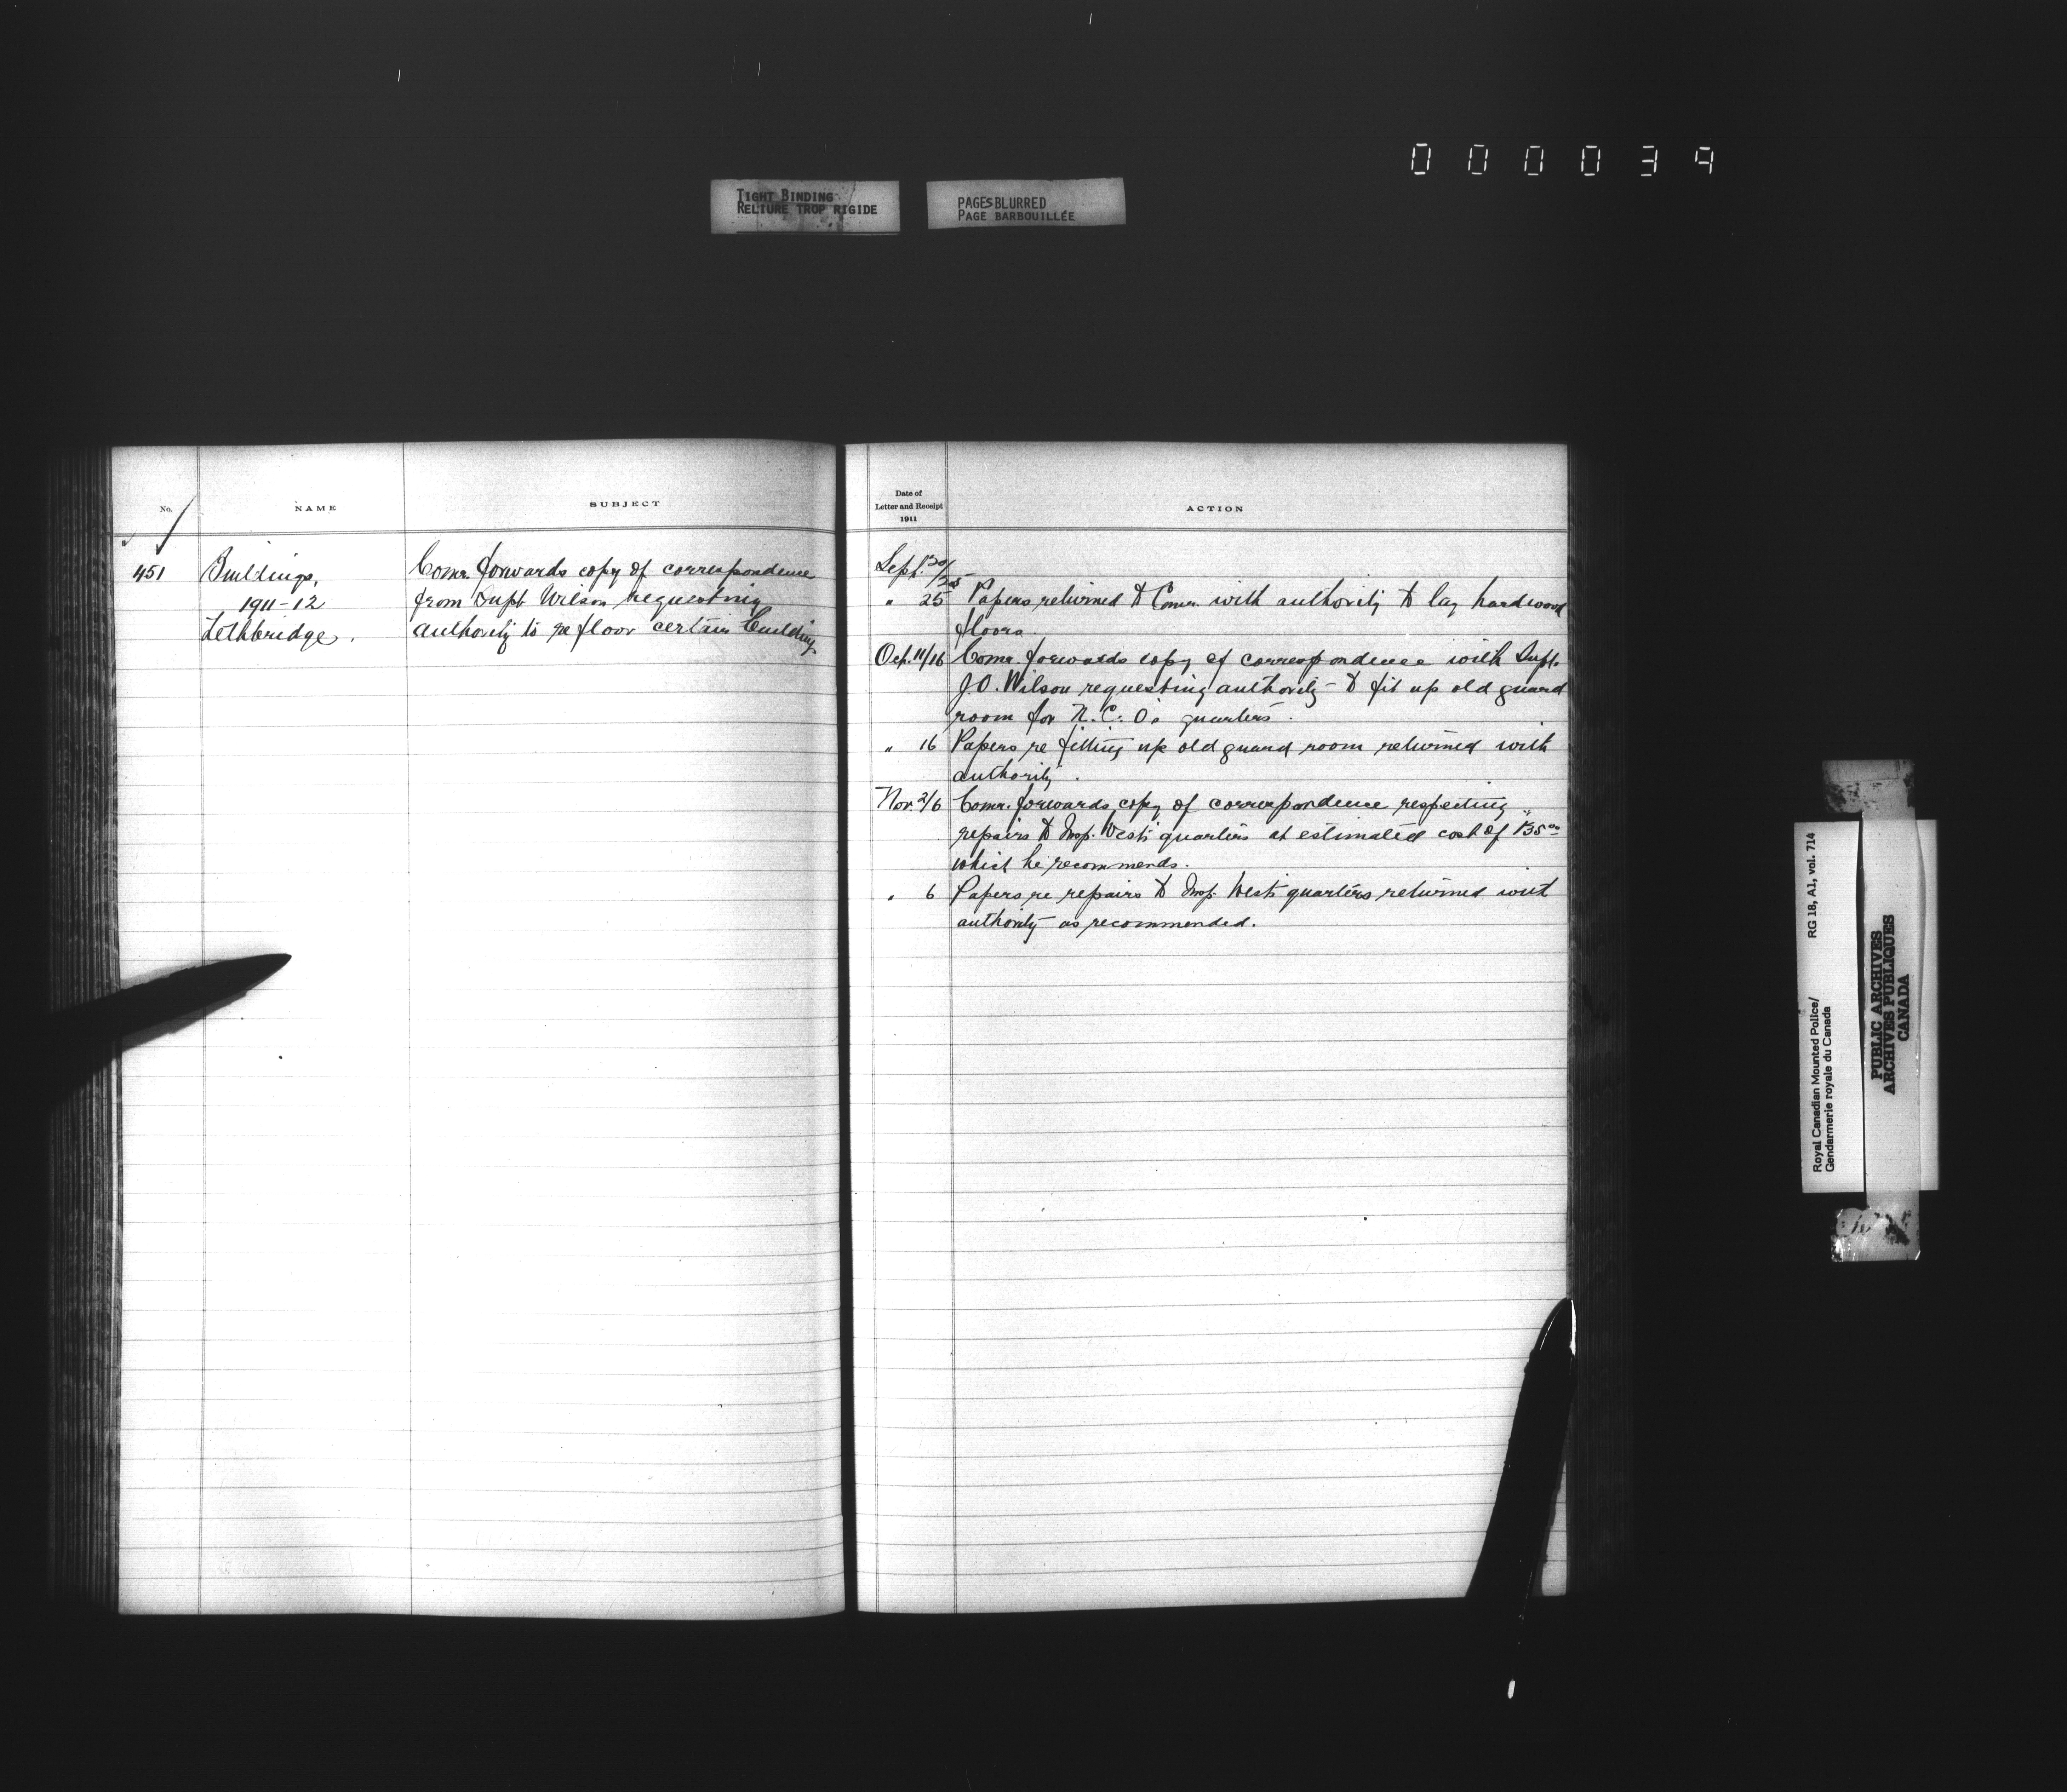 000039
TIGHT BINDING
RELIURE TROP RIGIDE
PAGES BLURRED
PAGE BARBOUILLÉE
No.
NAME
SUBJECT
451
Buildings,
1911-12
Lethbridge.
Comr. forwards copy of correspondence
from Supt Wilson requesting
authority to re floor certain building
Date of
Letter and Receipt
1911
ACTION
Sept. 20/25
" 25 Papers returned to Comr. with authority to lay hardwood
floors.
Oct. 11/16 Comr. forwards copy of correspondence with Supt.
J.O. Wilson requesting authority to fit up old guard
room for N.C.O's quarters.
" 16 Papers re fitting up old guard room returned with
authority.
Nov. 2/6 Comr. forwards copy of correspondence respecting
repairs to Insp. West's quarters at estimated cost of $35.00
which he recommends.
" 6 Papers re repairs to Insp. West's quarters returned with
authority as recommended.
Royal Canadian Mounted Police/ RG 18, A1, vol. 714
Gendarmerie royale du Canada
PUBLIC ARCHIVES
ARCHIVES PUBLIQUES
CANADA